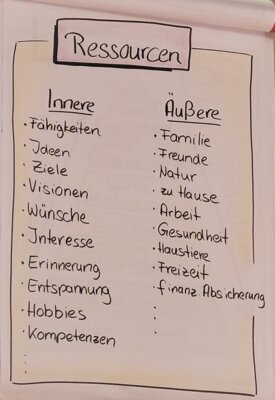 Ressourcen
Innere
· Fähigkeiten
· Ideen
· Ziele
· Visionen
· Wünsche
· Interesse
· Erinnerung
· Entspannung
· Hobbies
· Kompetenzen
Äußere
· Familie
· Freunde
· Natur
· zu Hause
· Arbeit
· Gesundheit
· Haustiere
· Freizeit
· finanz. Absicherung